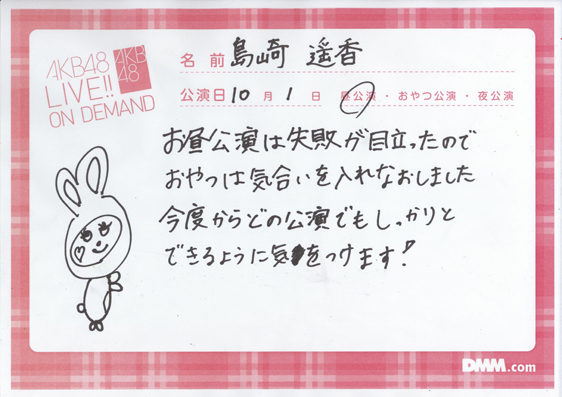 AKB48
LIVE!!
ON DEMAND
AKB
48
名前 島崎 遥香
公演日 10月1日 昼公演・おやつ公演・夜公演
お昼公演は失敗が目立ったので
おやつは気合いを入れなおしました
今度からどの公演でもしっかりと
できるように気をつけます!
DMM.com